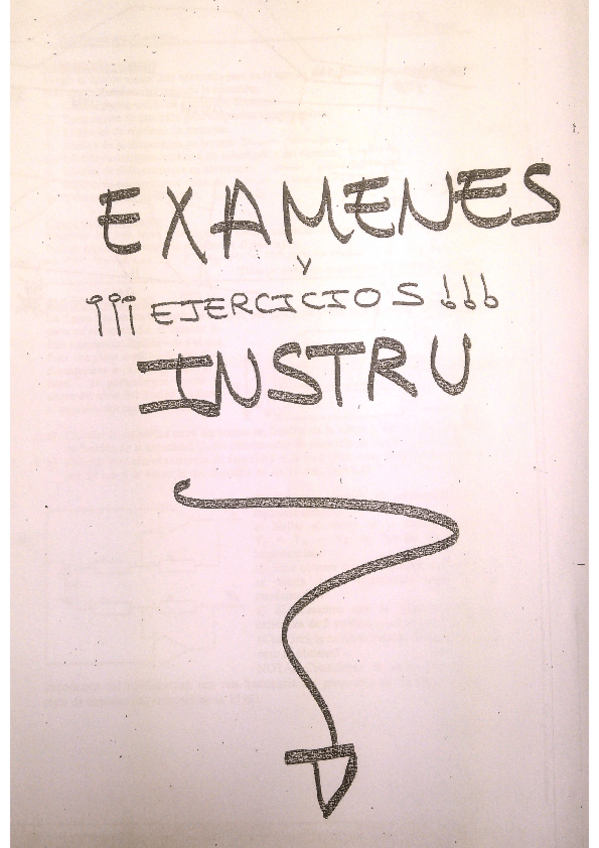 EXAMENES
Y
¡¡¡EJERCICIOS!!!
INSTRU